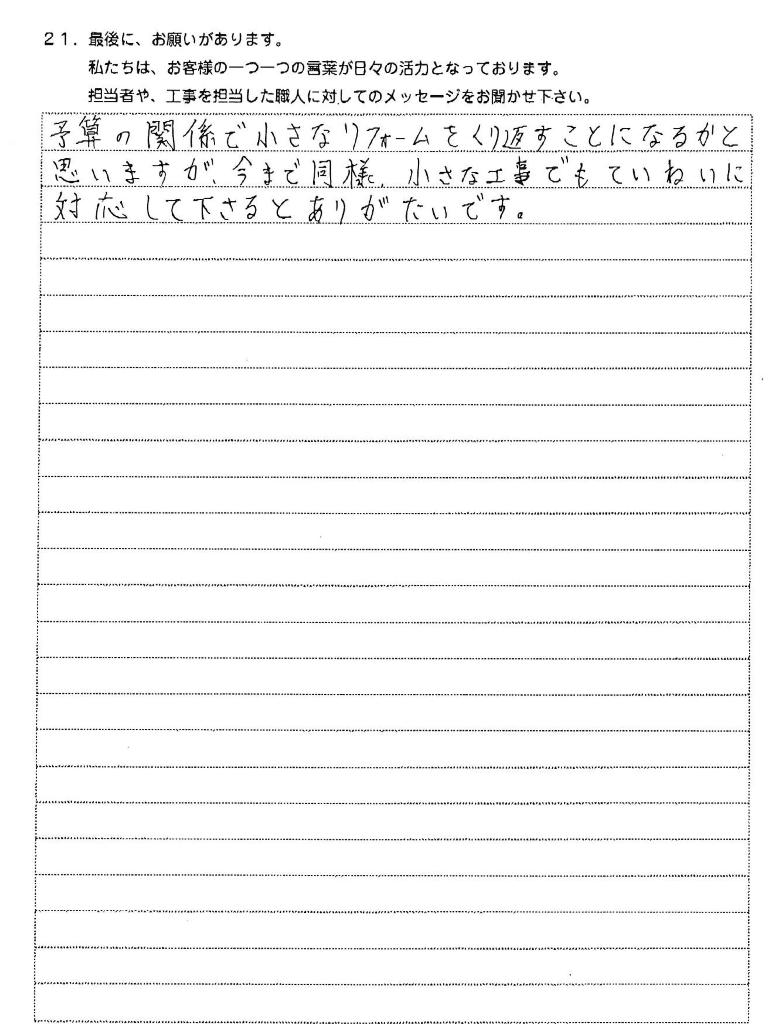 21．最後に、お願いがあります。
私たちは、お客様の一つ一つの言葉が日々の活力となっております。
担当者や、工事を担当した職人に対してのメッセージをお聞かせ下さい。
予算の関係で小さなリフォームをくり返すことになるかと
思いますが、今まで同様、小さな工事でもていねいに
対応して下さるとありがたいです。